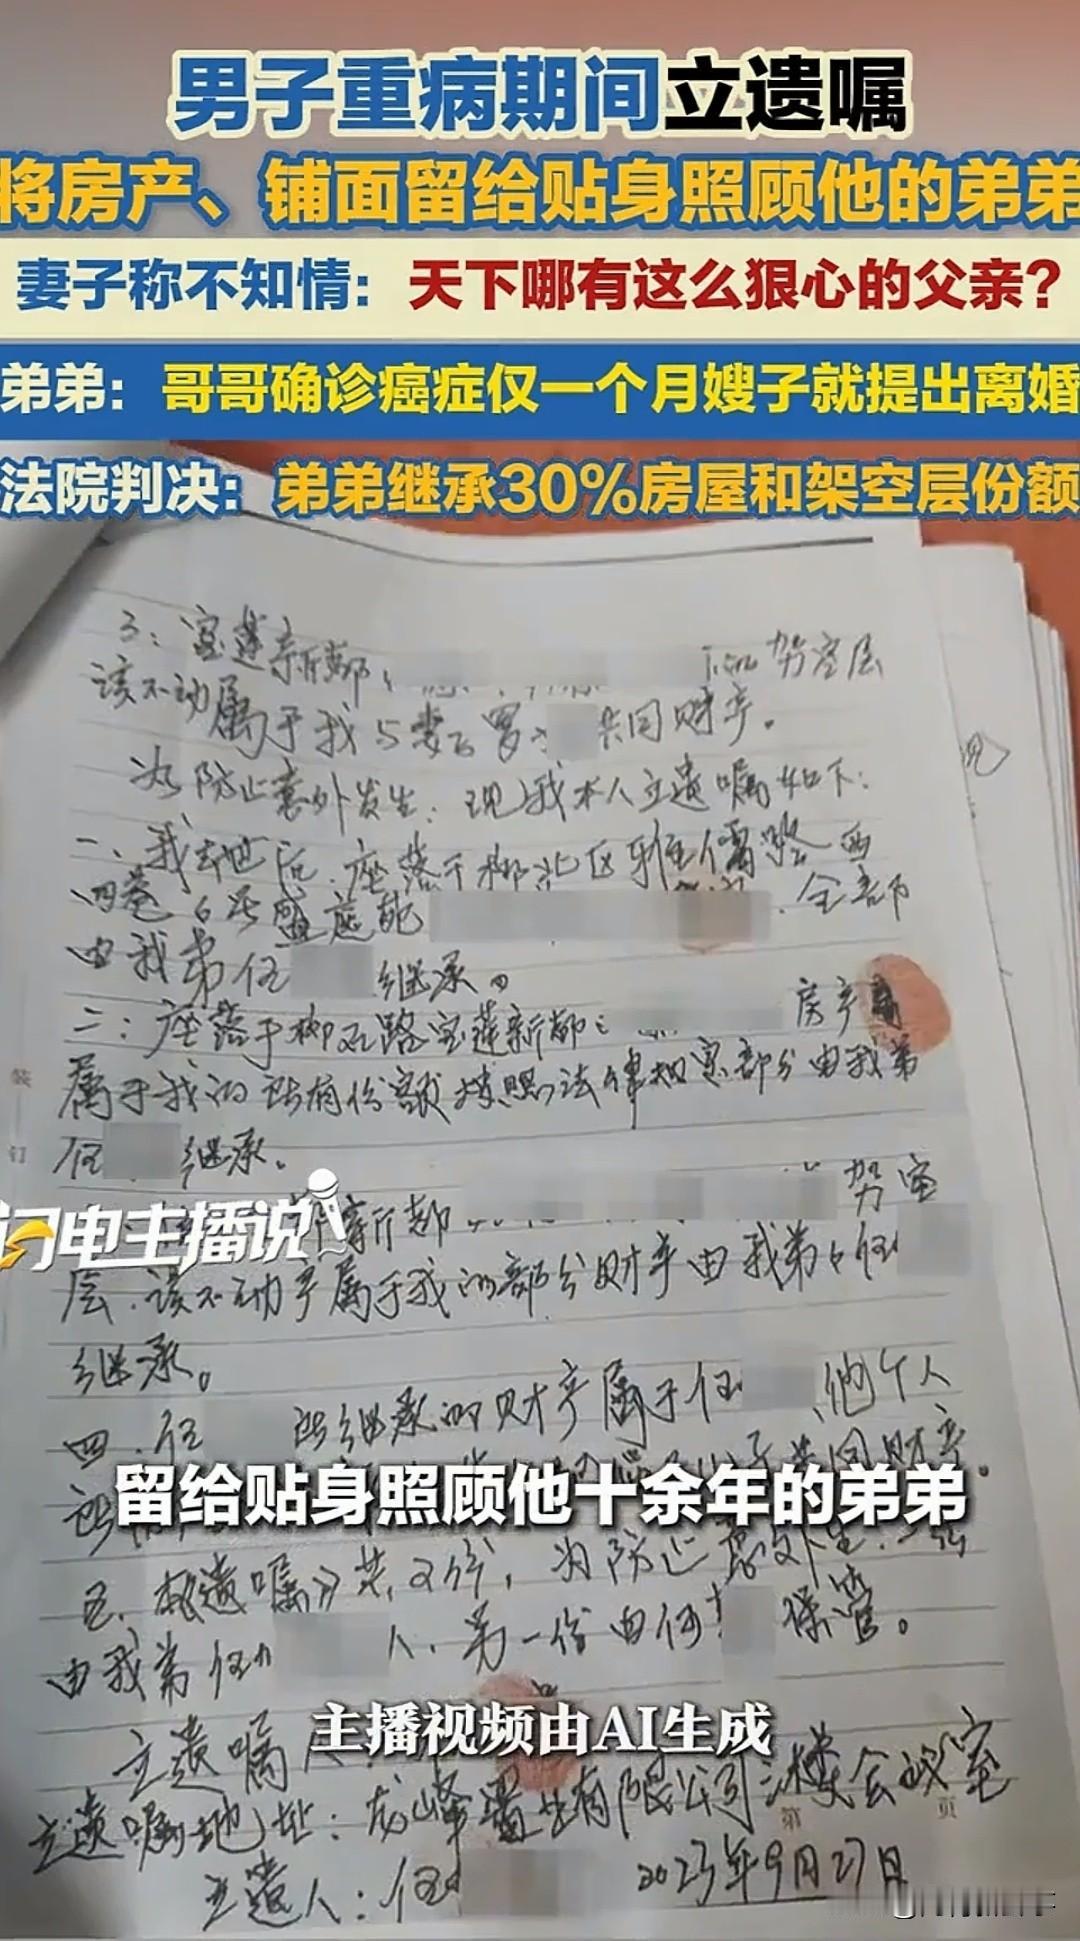 男子重病期间立遗嘱
将房产、铺面留给贴身照顾他的弟弟
妻子称不知情：天下哪有这么狠心的父亲？
弟弟：哥哥确诊癌症仅一个月嫂子就提出离婚
法院判决：弟弟继承30%房屋和架空层份额
3：宝莲新都： 架空层
该不动属于我与妻子罗 共同财产。
为防止意外发生：现我本人立遗嘱如下：
一、我去世后、座落于柳北区雅儒路西
四巷6号 全部
由我弟任 继承。
二：座落于柳石路宝莲新都： 房产
属于我的所有份额按照法律规定部分由我弟
任 继承。
新都 架空
层、该不动产属于我的部分财产由我弟弟任
继承。
四、任 所继承的财产属于任 他个人
共同财产。
五、 遗嘱》共2份，为防止意外 一份
由我弟任 人、另一份由何 保管。
立遗嘱人
立遗嘱地址：龙峰置业有限公司三楼会议室
立遗人：任 2023年9月27日
装
订
第
页
闪电主播说
留给贴身照顾他十余年的弟弟
主播视频由AI生成